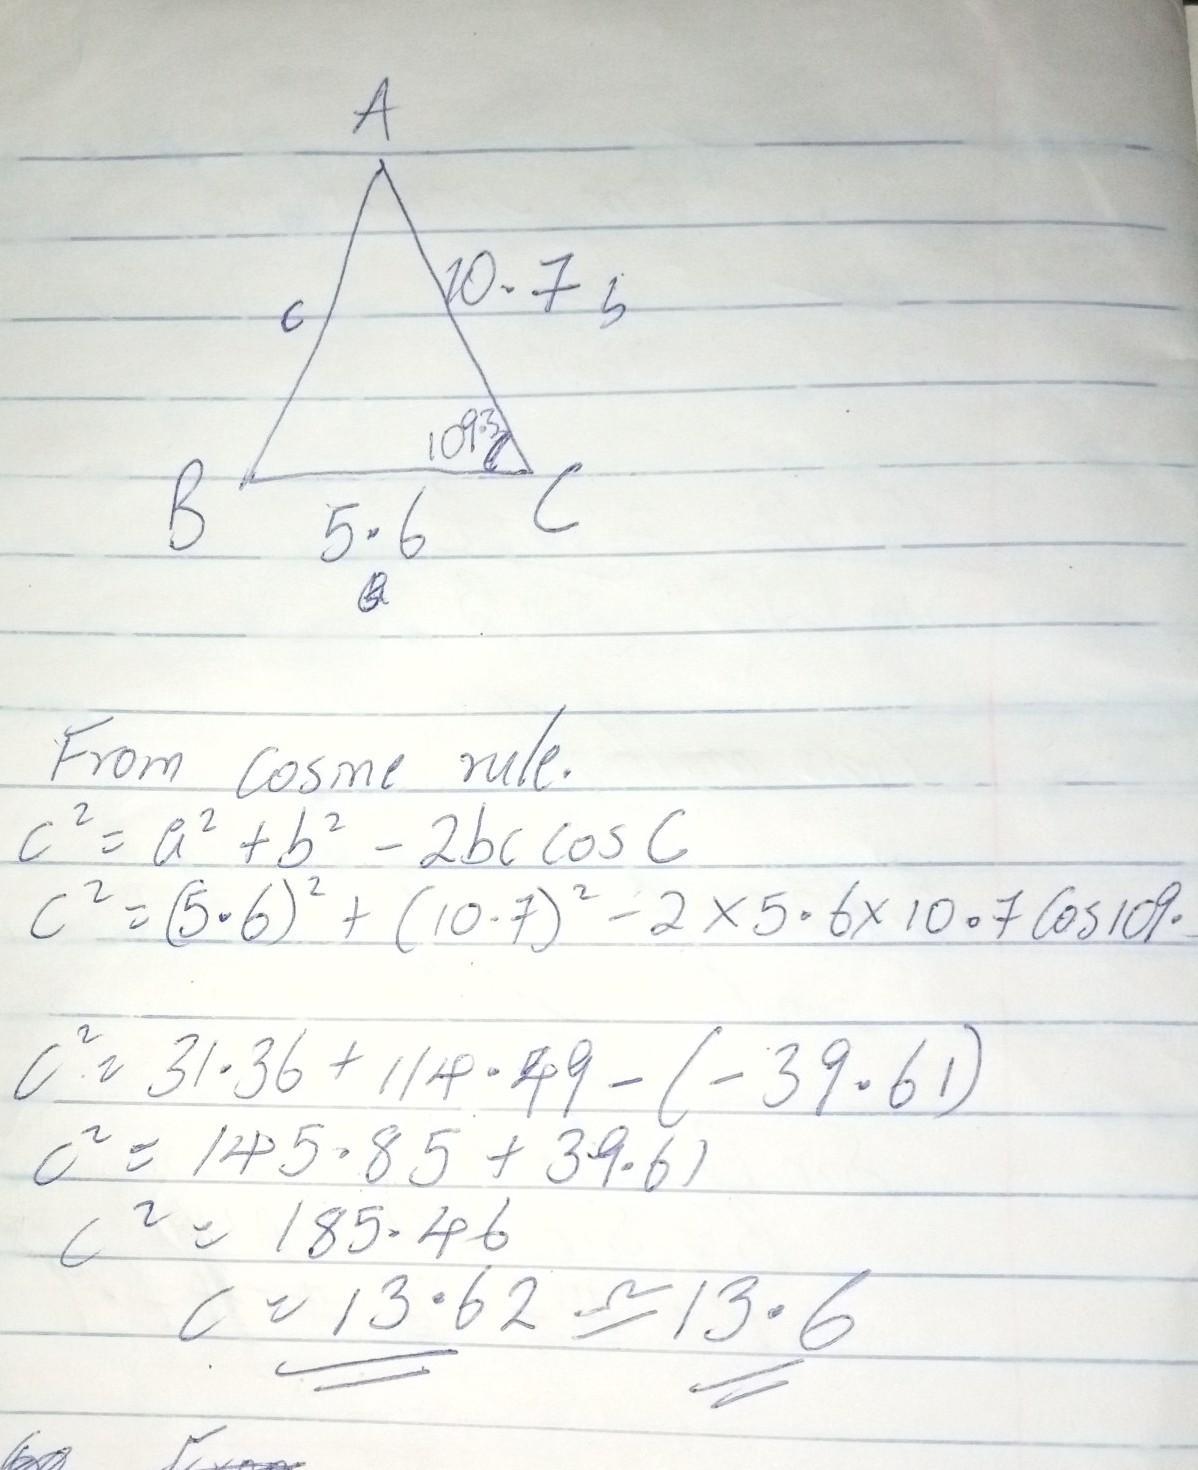 A
c 10.7 b
109.3
B 5.6 C
a
From cosine rule.
c² = a² + b² - 2bc cos C
c² = (5.6)² + (10.7)² - 2 × 5.6 × 10.7 Cos 109.
c² = 31.36 + 114.49 - (-39.61)
c² = 145.85 + 39.61
c² = 185.46
c = 13.62 ≃ 13.6